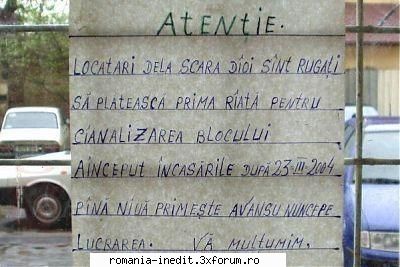 ATENȚIE.
LOCATARI DELA SCARA DIOI SÎNT RUGAȚI
SĂ PLĂTEASCĂ PRIMA RÎATĂ PENTRU
CÎANALIZAREA BLOCULUI
AINCEPUT ÎNCASĂRILE DUPĂ 23-III-2004
PÎNĂ NIUĂ PRIMEȘTE AVANSU NUNCEPE
LUCRAREA. VĂ MULȚUMIM.
romania-inedit.3xforum.ro